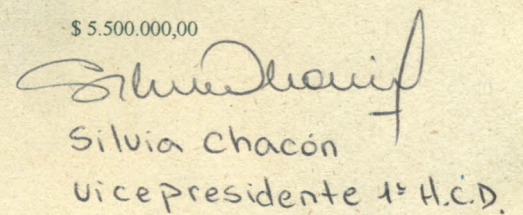 $ 5.500.000,00
Silvia Chacón
Silvia Chacón
Vicepresidente 1º H.C.D.